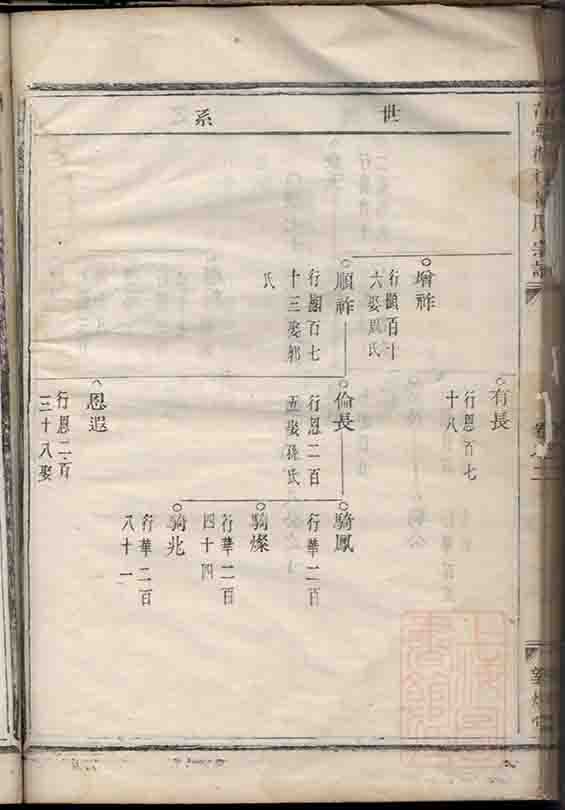 世系
增祚
行顯百十
六娶周氏
順祚
行顯百七
十三娶郭
氏
有長
行恩百七
十八
倫長
行恩二百
五娶孫氏
恩遐
行恩二百
三十八娶
騎鳳
行華二百
騎燦
行華二百
四十四
騎兆
行華二百
八十一
上海圖書館